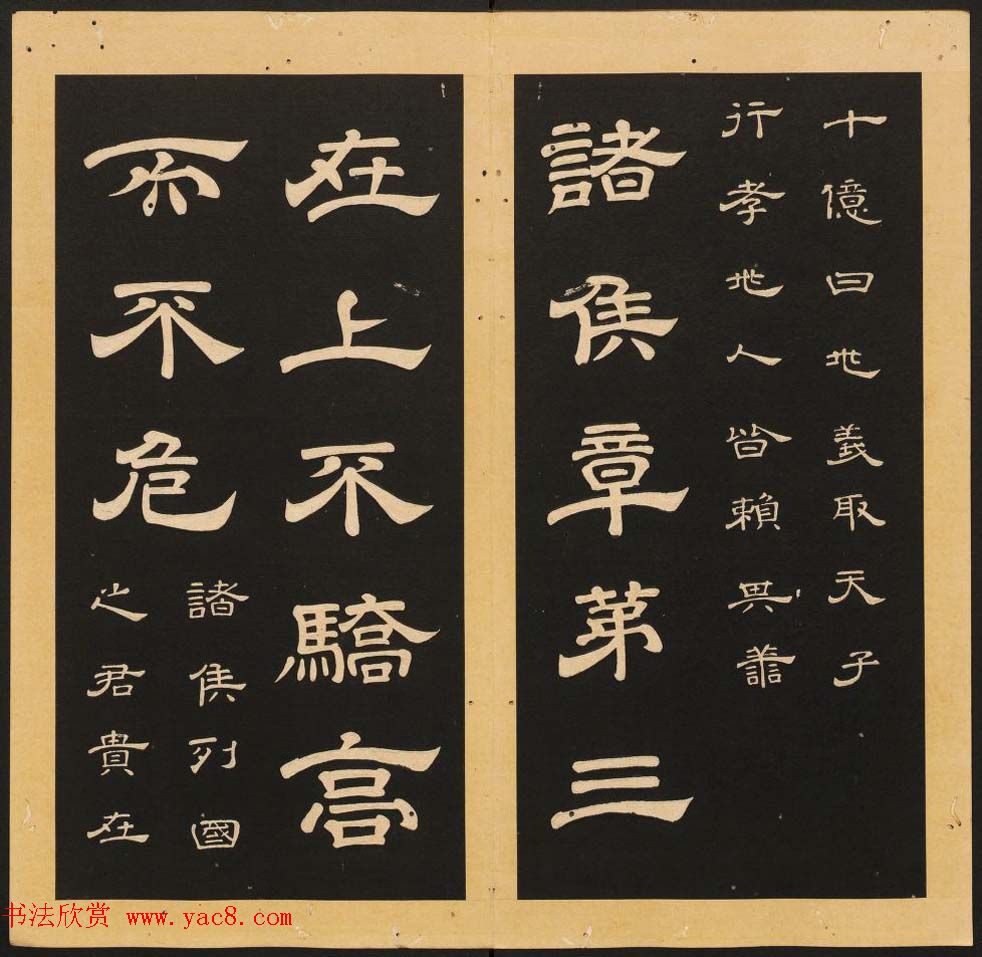 十億曰兆義取天子
行孝兆人皆賴其善
諸侯章第三
在上不驕高
而不危
諸侯列國
之君貴在
书法欣赏 www.yac8.com